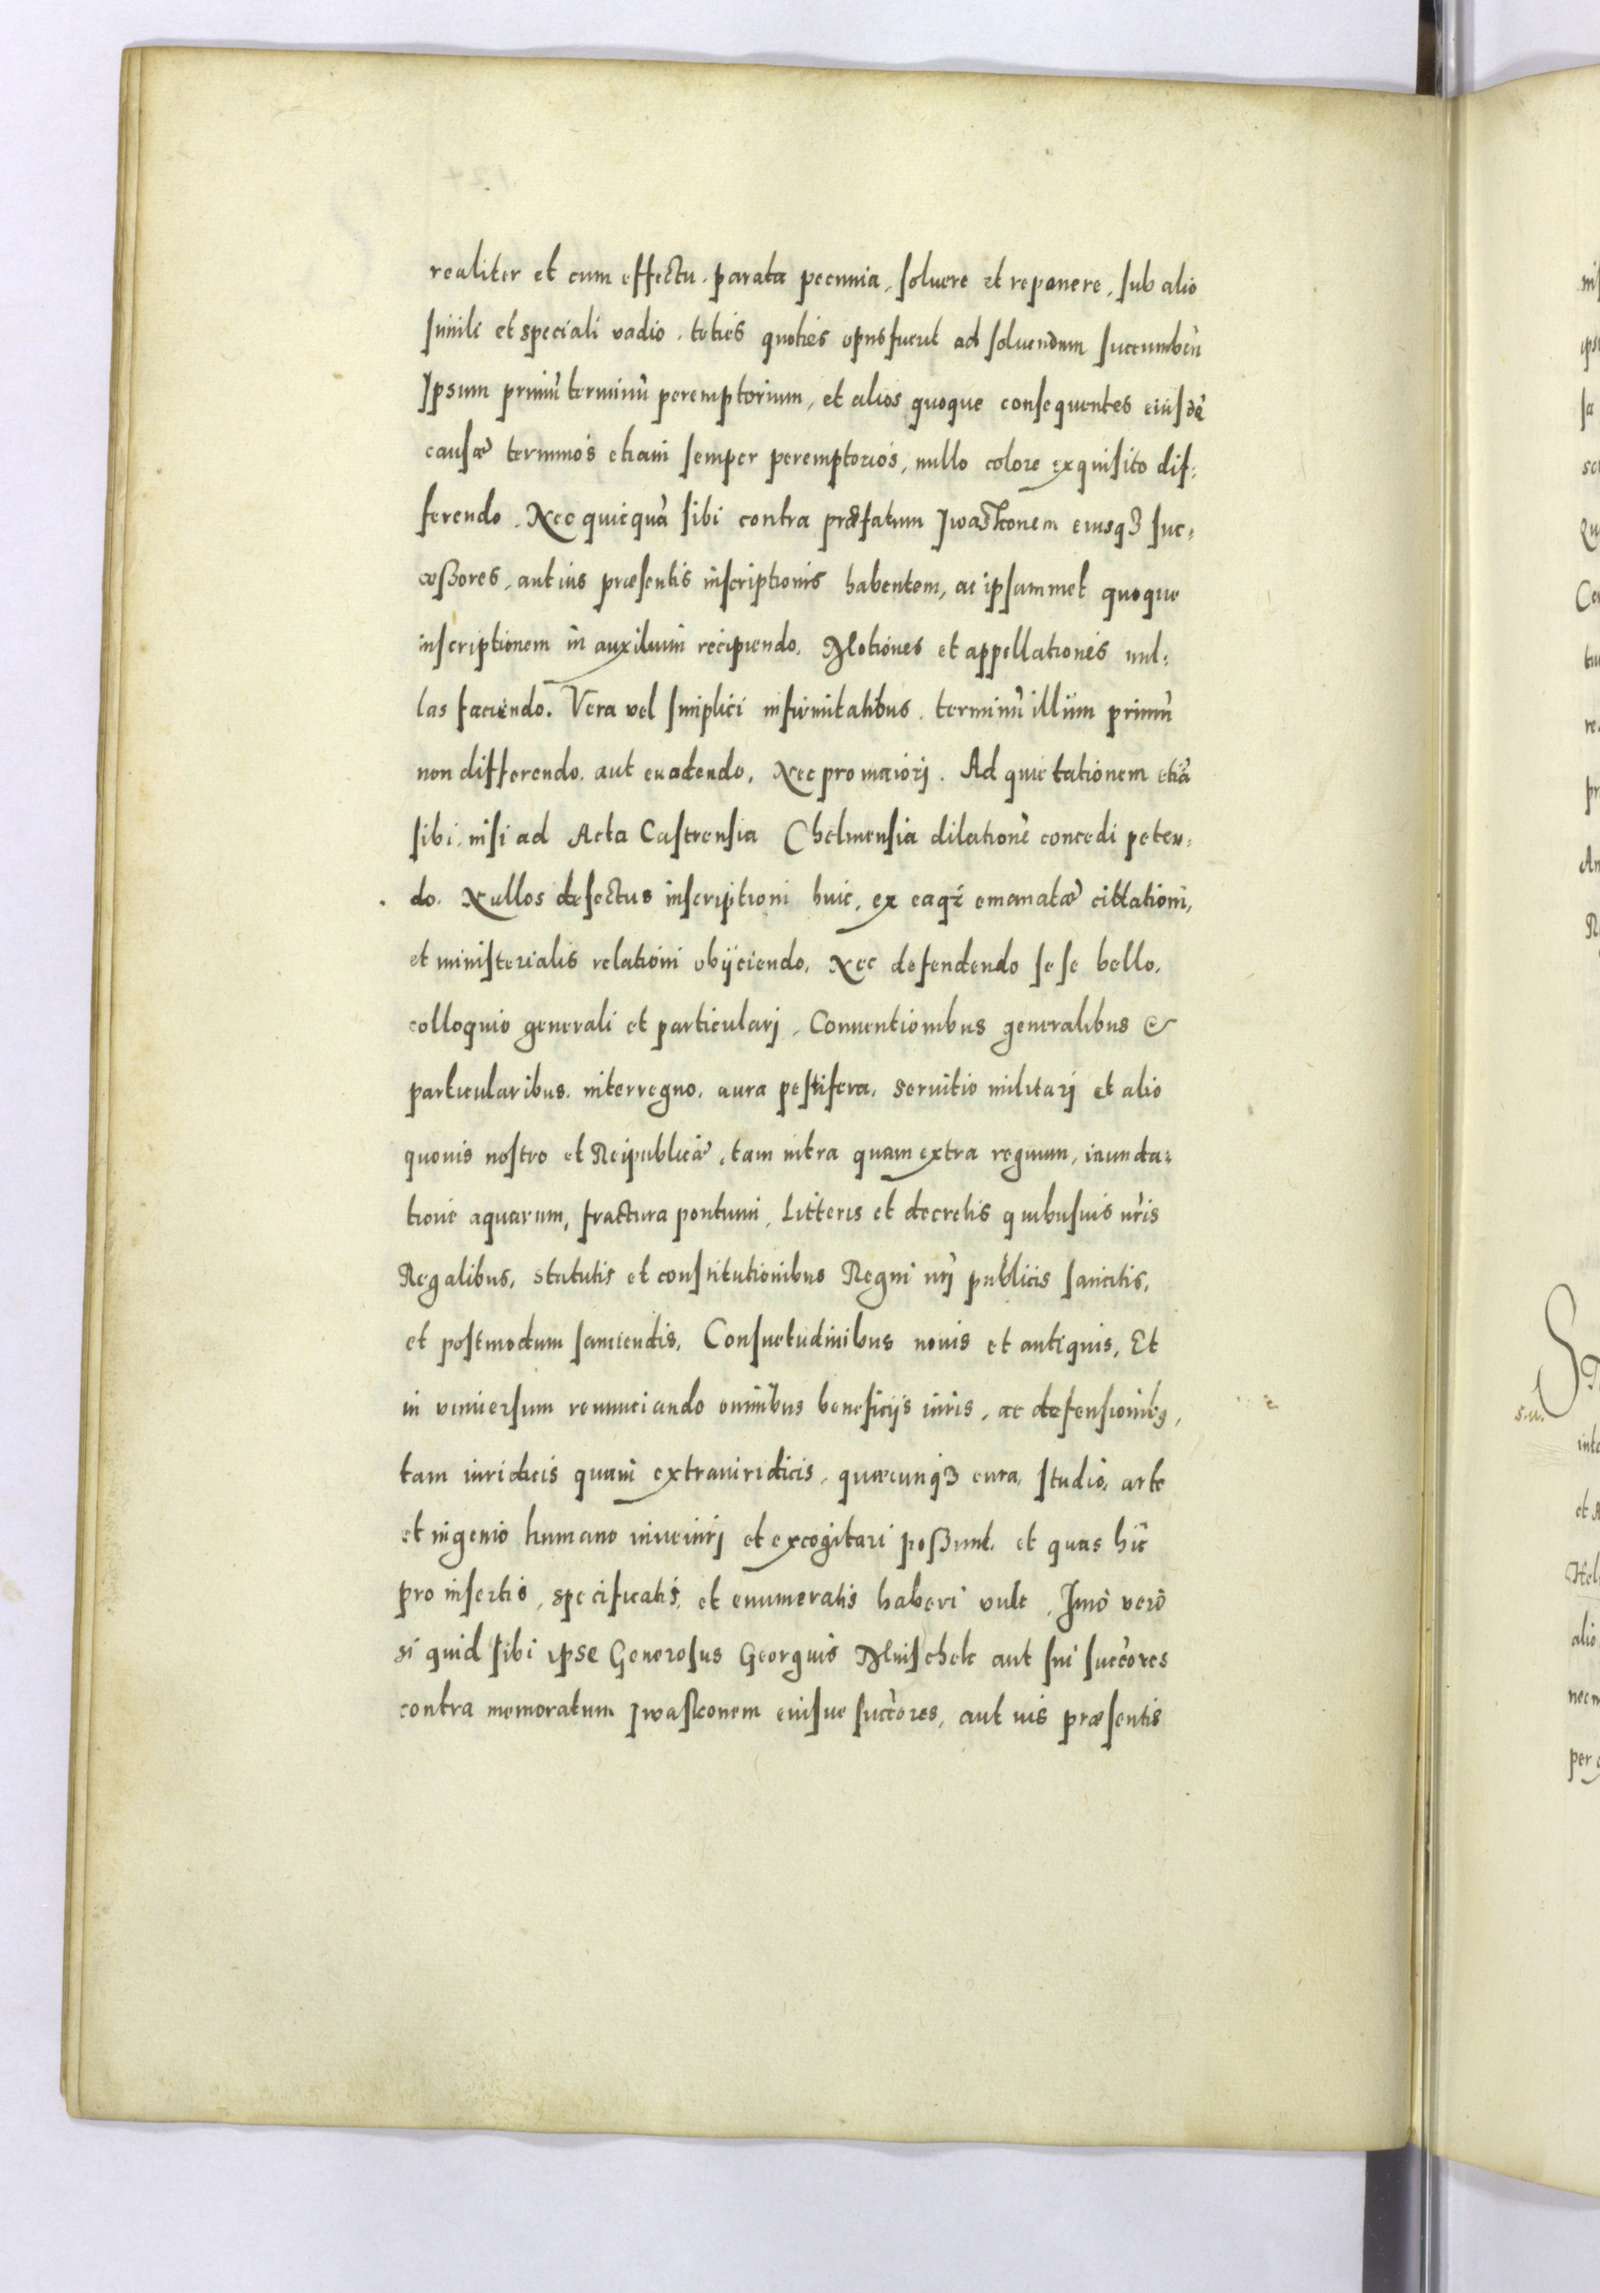 realiter et cum effectu. parata pecunia, soluere et reponere, sub alio
simili et speciali vadio. toties quoties opus fuerit ad soluendum succumben̄
Ipsum primū terminū peremptorium, et alios quoque consequentes eiusdē
causæ terminos etiam semper peremptorios, nullo colore exquisito dif:
ferendo. Nec quicquā sibi contra præfatum Iwasconem eiusqȝ suc:
cessores, aut ius præsentis inscriptionis habentem, ac ipsammet quoque
inscriptionem in auxilium recipiendo. Motiones et appellationes nul:
las faciendo. Vera vel simplici infirmitatibus. terminū illum primū
non differendo. aut euadendo, Nec pro maiorj. Ad quietationem etiā
sibi, nisi ad Acta Castrensia Chelmensia dilationē concedi peten:
do. Nullos defectus inscriptioni huic, ex eaqȝ emanatæ citationi,
et ministerialis relationi obijciendo. Nec defendendo sese bello,
colloquio generali et particularj, Conuentionibus generalibus &
particularibus. interregno. aura pestifera. seruitio militarj et alio
quouis nostro et Reipublicæ, tam intra quam extra regnum, inunda:
tione aquarum, fractura pontium, Litteris et decretis quibusuis nr̄is
Regalibus, statutis et constitutionibus Regni nr̄j publicis sancitis,
et postmodum sanciendis, Consuetudinibus nouis et antiquis, Et
in vniuersum renunciando omnibus beneficijs iuris, ac defensionibȝ,
tam iuridicis quam extraiuridicis, quæcunqȝ cura, studio, arte
et ingenio humano inuenirj et excogitari possunt. et quas hic
pro insertis, specificatis, et enumeratis haberi vult, Imo vero
si quid sibi ipse Generosus Georgius Mnischek aut sui succōres
contra memoratum Iwasconem eiusue succōres, aut ius præsentis